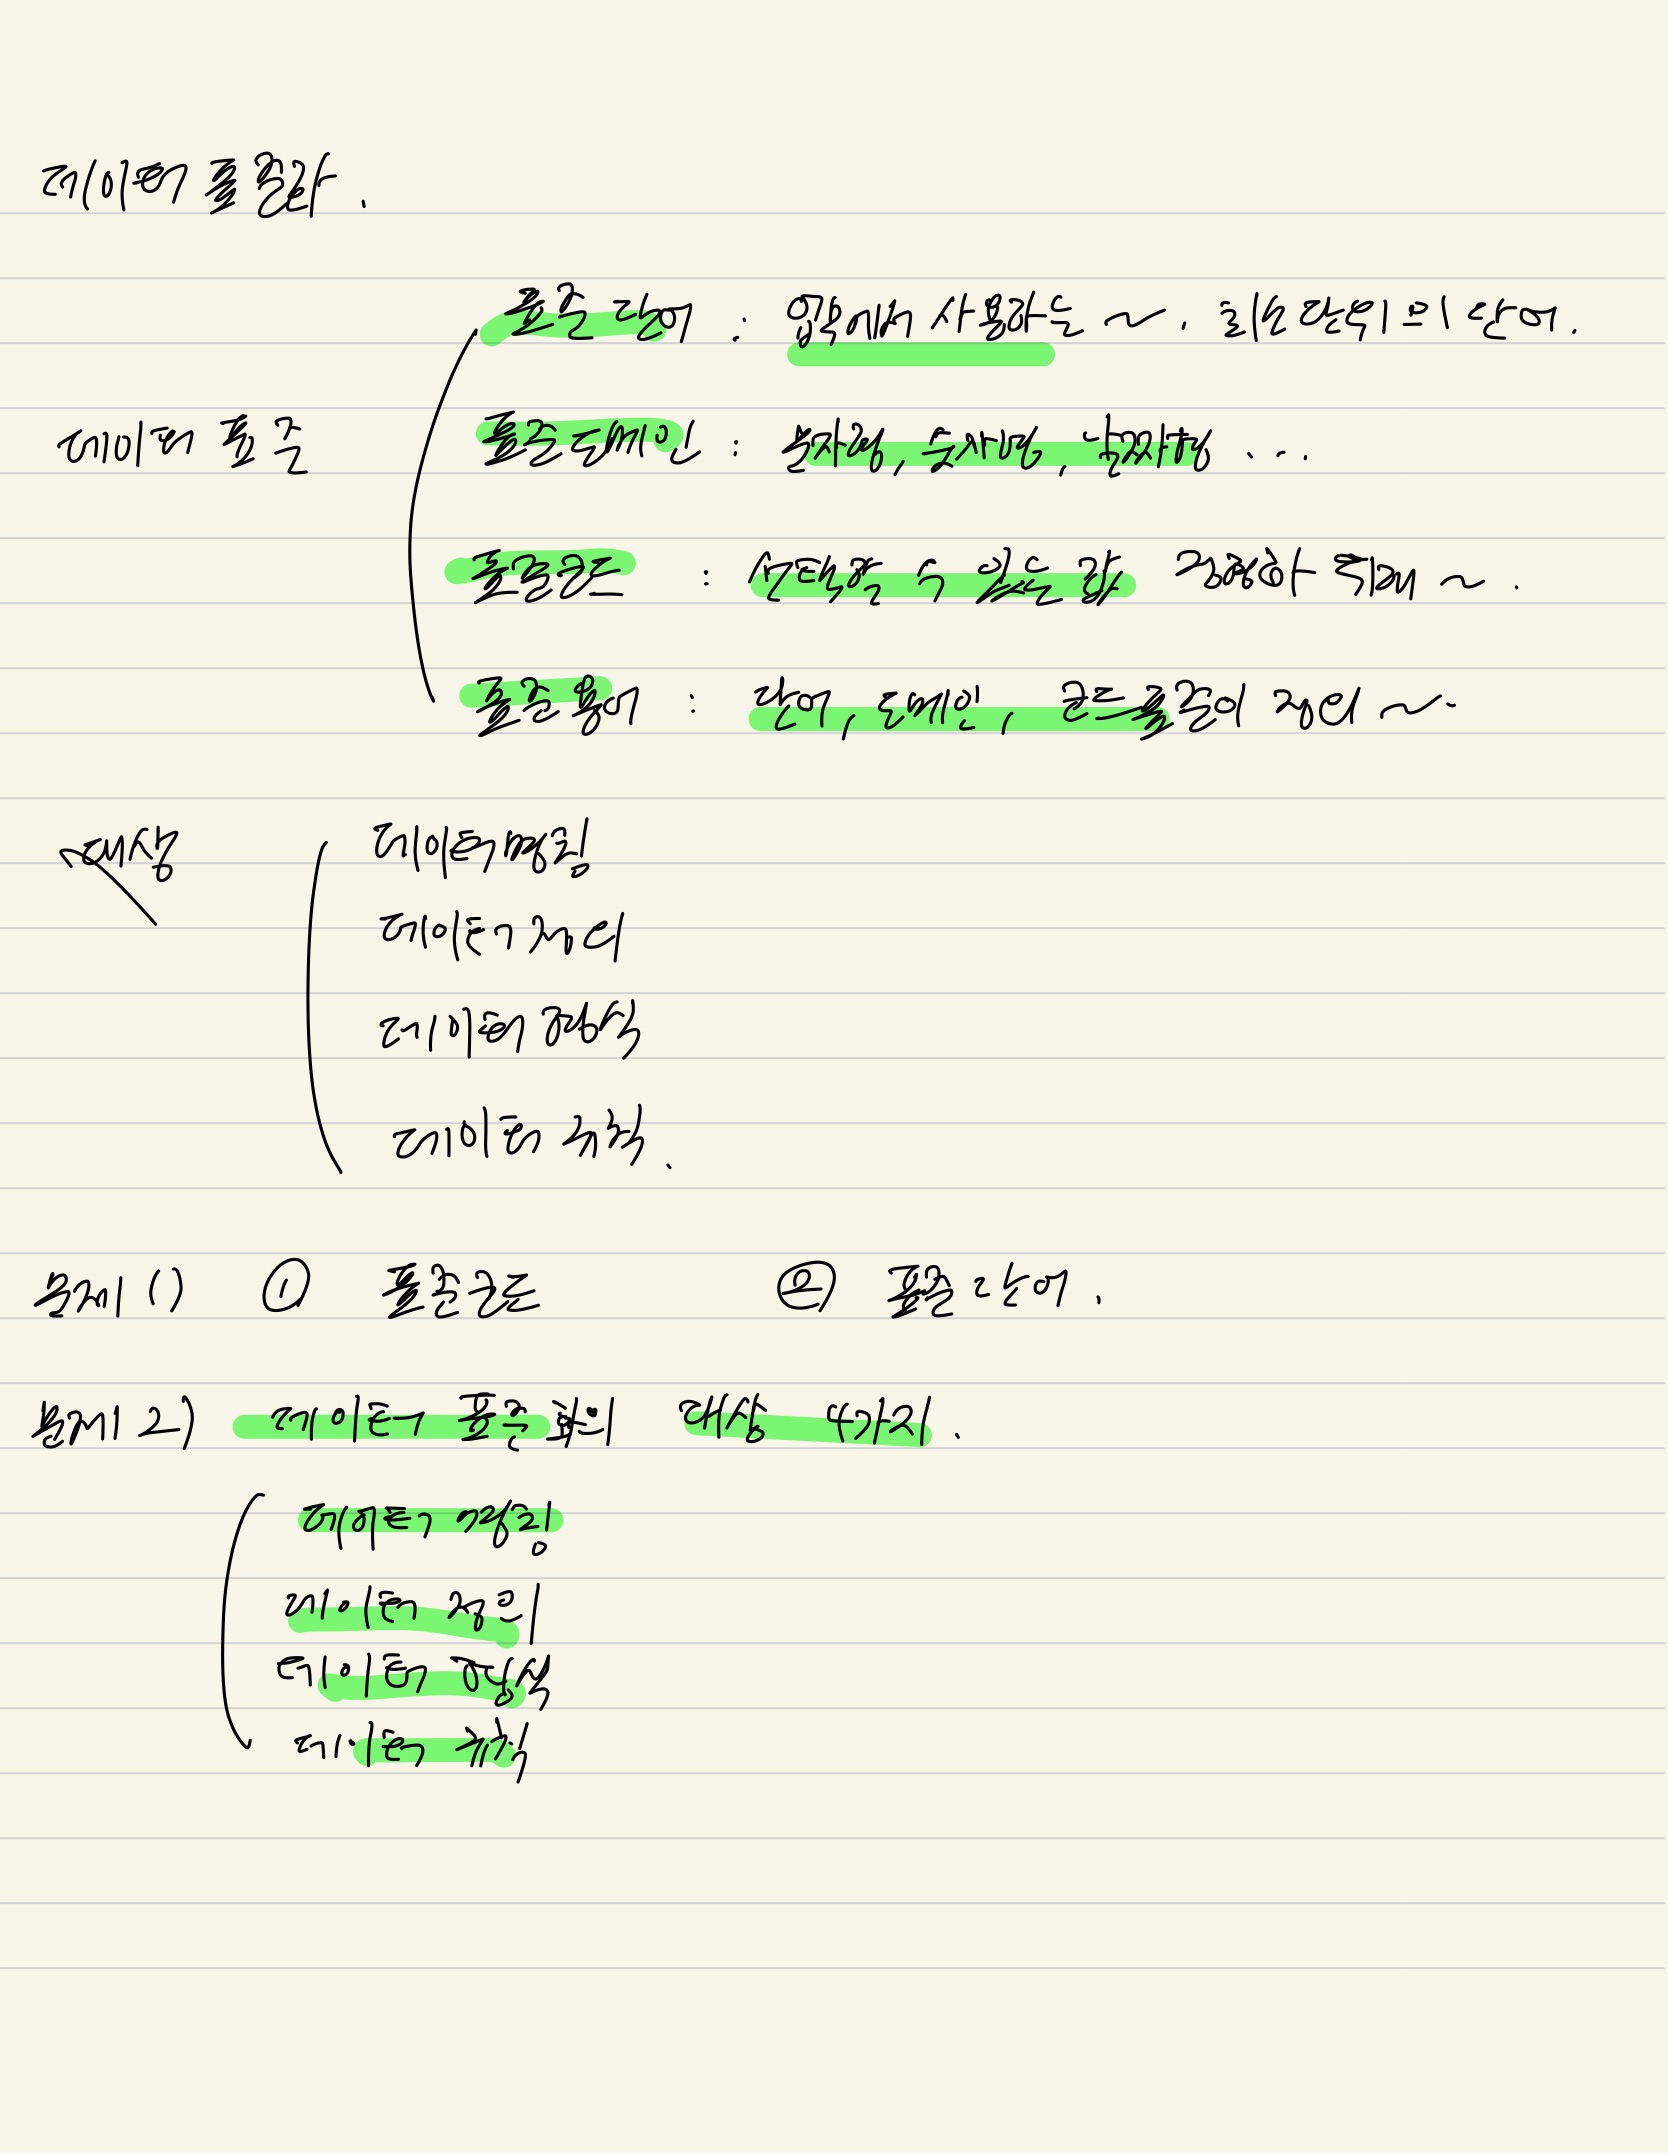 데이터 표준화.
표준 단어 : 업무에서 사용하는 ~. 최소 단위의 단어.
데이터 표준
표준 도메인 : 문자형, 숫자형, 날짜형 ...
표준코드 : 선택할 수 있는 값 정형화 ~.
표준용어 : 단어, 도메인, 코드 표준이 정의 ~.
대상
데이터 명칭
데이터 정의
데이터 형식
데이터 규칙.
문제 1) ① 표준코드 ② 표준단어.
문제 2) 데이터 표준화의 대상 4가지.
데이터 명칭
데이터 정의
데이터 형식
데이터 규칙